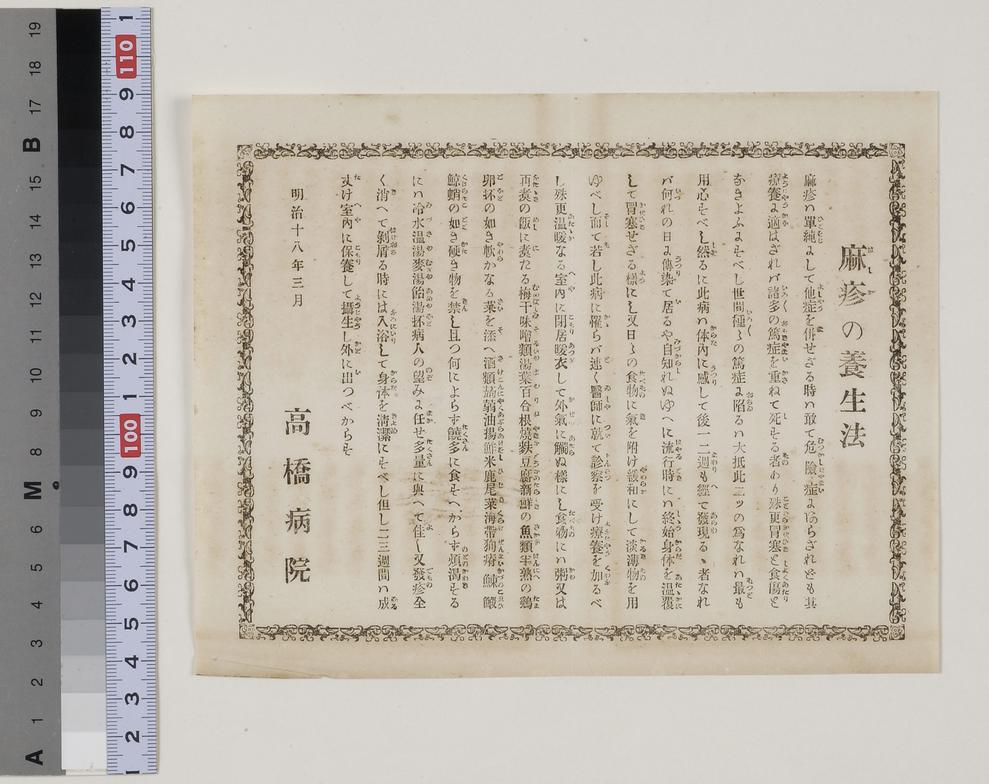 麻疹の養生法
麻疹ハ單純よして他症を併せざる時ハ敢て危險症よあらされども其
療養よ適はざれハ諸多の篤症を重ねて死せる者あり殊更冒寒と食傷と
なきよふよすべし世間種〻の篤症よ陷るハ大抵此二ツの爲なれハ最も
用心すべし然るに此病ハ体内に感して後一二週も經て發現るゝ者なれ
バ何れの日よ傳染て居るや自知れぬゆへに流行時にハ終始身体を温覆
して冒寒せざる樣にし又日〻の食物に氣を附け緩和にして淡薄物を用
ゆべし而て若し此病に罹らバ速く醫師に就て診察を受け療養を加るべ
し殊更温暖なる室内に閉居暖衣して外氣に觸ぬ樣にし食物にハ粥又は
再煑の飯に煑たる梅干味噌類湯葉百合根燒麩豆腐新鮮の魚類半熟の鷄
卵抔の如き軟かなる菜を添へ酒類蒟蒻油揚鮓米鹿尾菜海帶狗瘠鰊鰕
鯨蛸の如き硬き物を禁し且つ何によらす饒多に食すへからす煩渇する
にハ冷水温湯麥湯飴湯抔病人の望みよ任せ多量に與へて佳し又發疹全
く消へて剝屑る時には入浴して身体を淸潔にすべし但し二三週間ハ成
丈け室内に保養して攝生し外に出つべからす
明治十八年三月
高橋病院
A 1 2 3 4 5 6 M 8 9 10 11 12 13 14 15 B 17 18 19
1 2 3 4 5 6 7 8 9 100 1 2 3 4 5 6 7 8 9 110 1